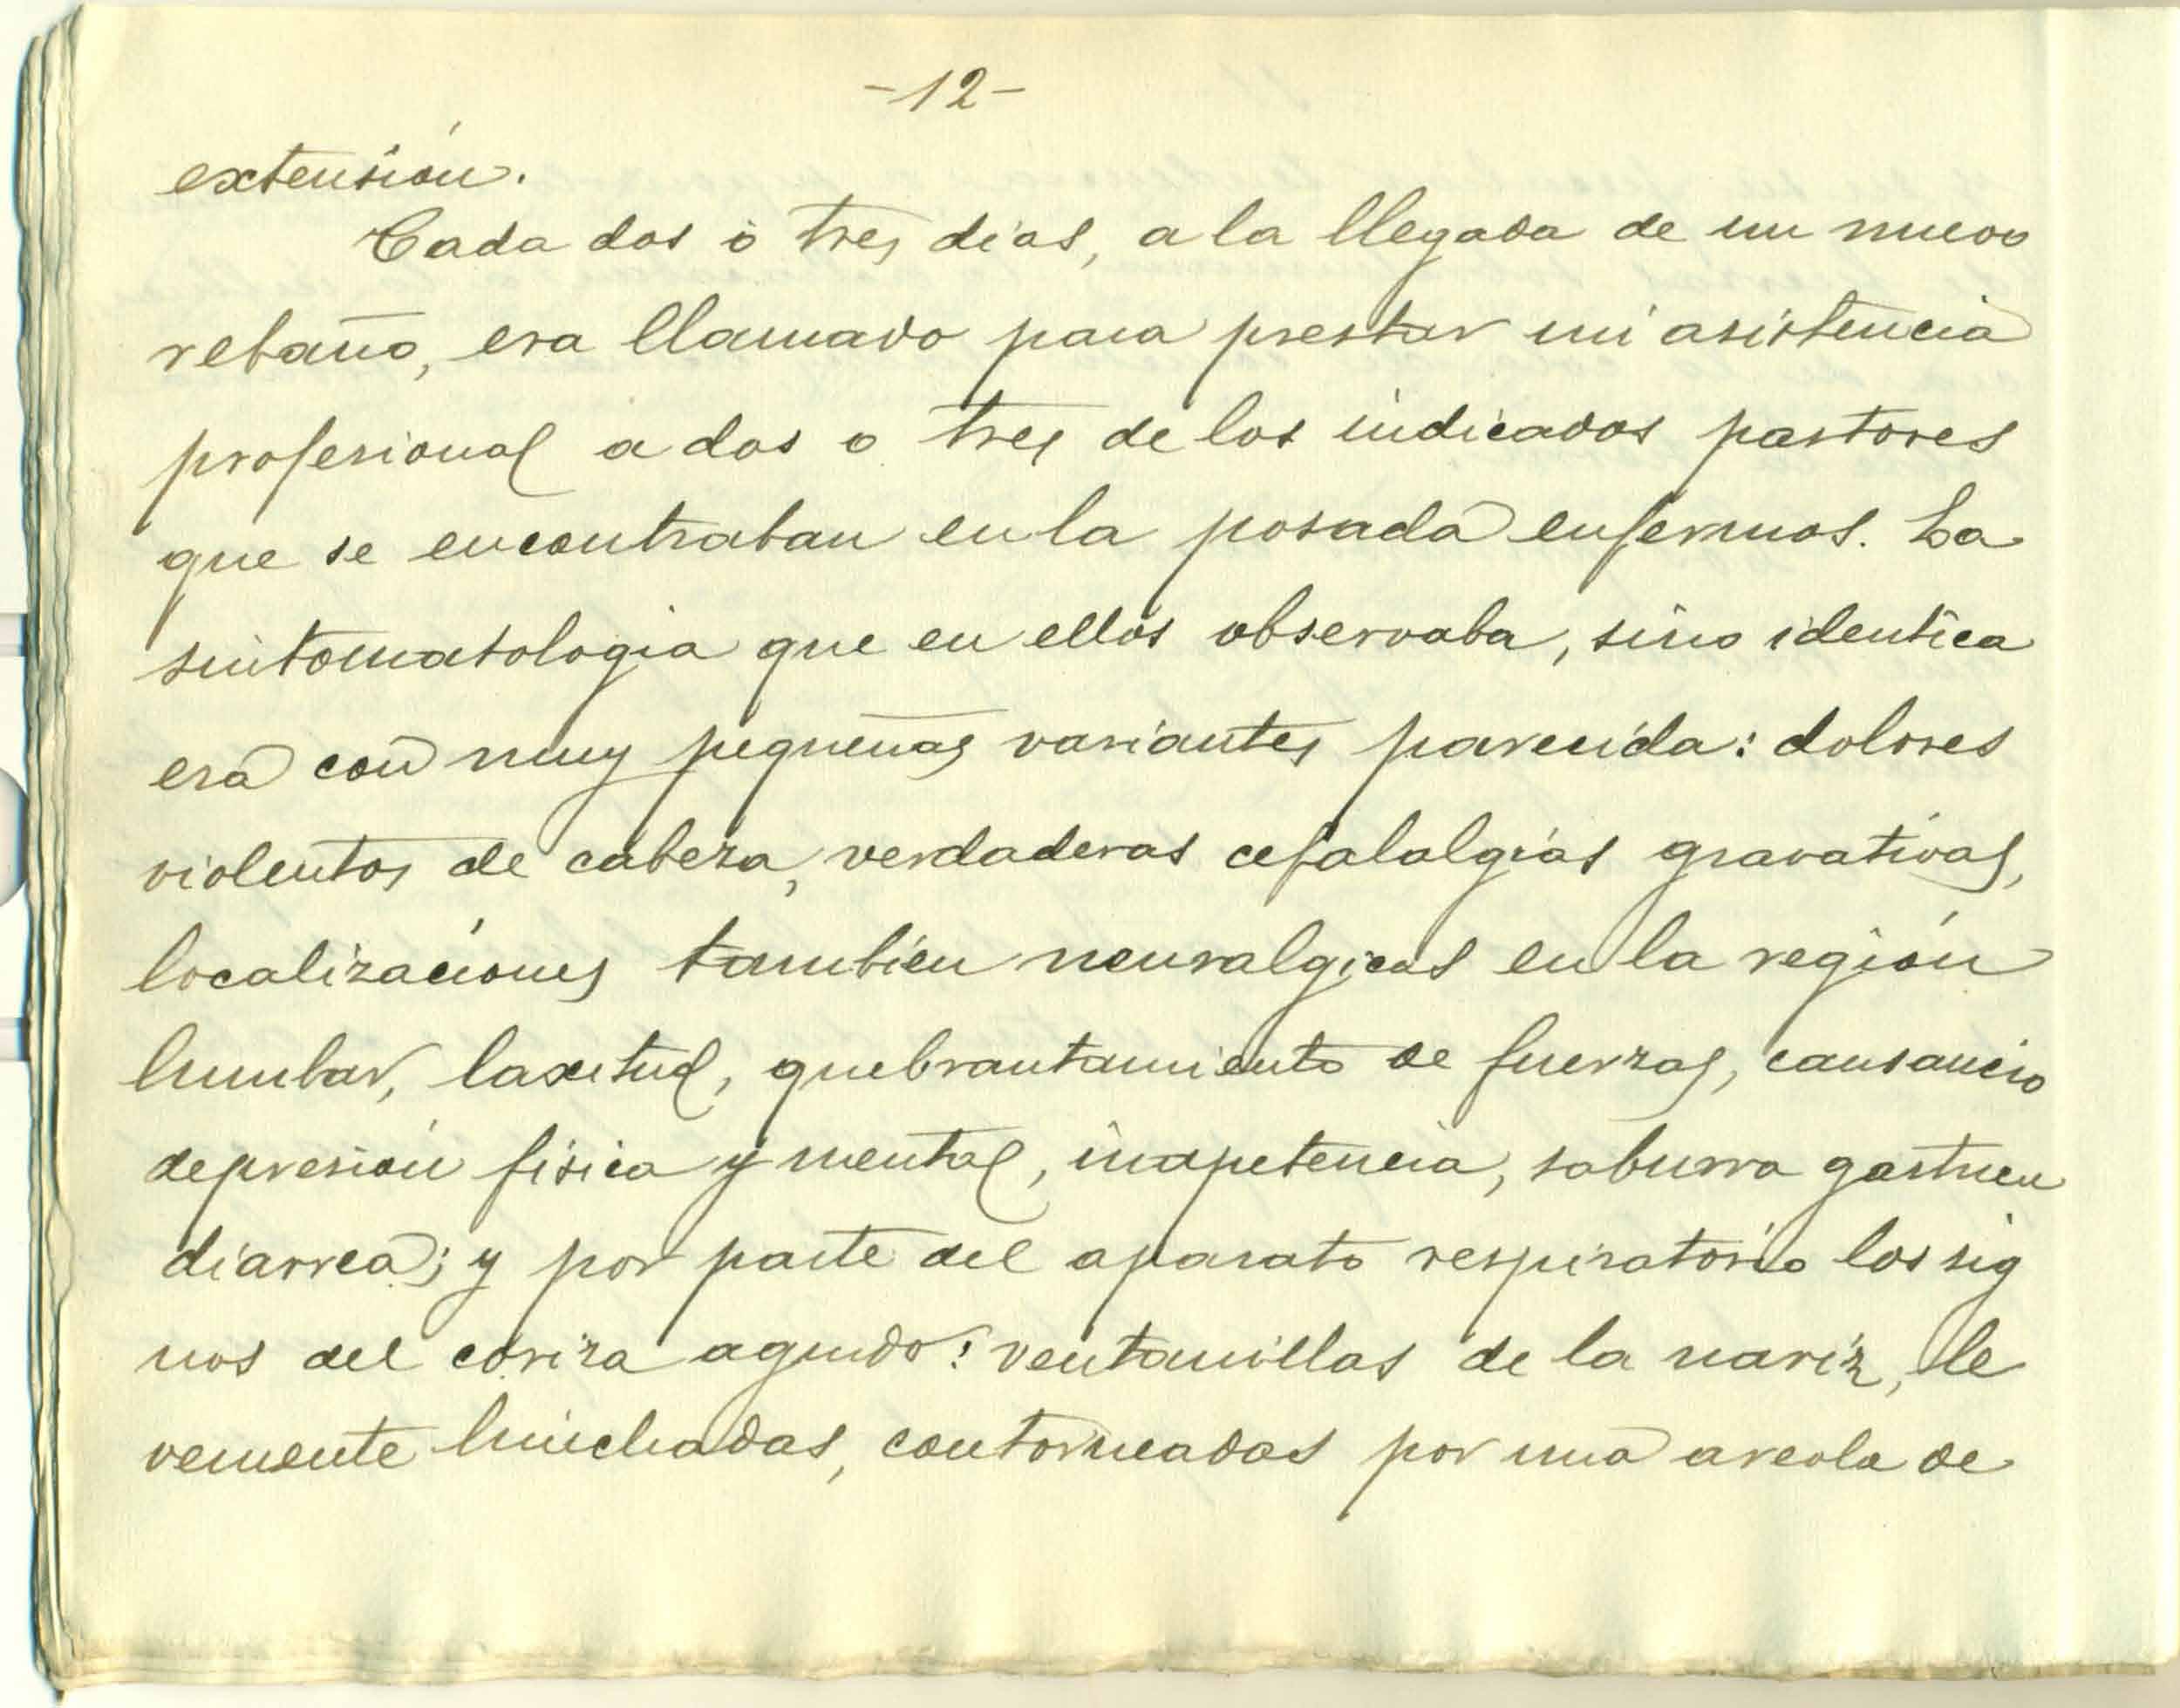 -12-
extensión.
Cada dos ó tres dias, a la llegada de un nuevo
rebaño, era llamado para prestar mi asistencia
profesional a dos o tres de los indicados pastores
que se encontraban en la posada enfermos. La
sintomatologia que en ellos observaba, sino identica
era con muy pequeñas variantes parecida: dolores
violentos de cabeza, verdaderas cefalalgias gravativas,
localizaciones también neuralgicas en la región
lumbar, laxitud, quebrantamiento de fuerzas, cansancio
depresión fisica y mental, inapetencia, saburra
diarrea; y por parte del aparato respiratorio los sig
nos del coriza agudo: ventanillas de la nariz, le
vemente hinchadas, contorneadas por una areola de